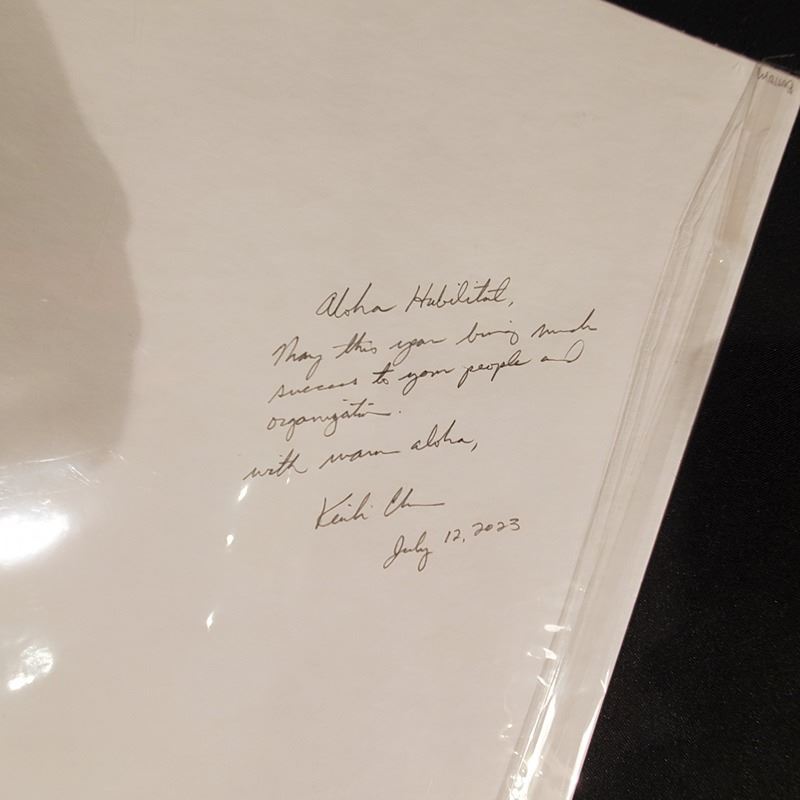 Aloha Habilitat,
May this year bring much
success to your people and
organization.
with warm aloha,
July 12, 2023